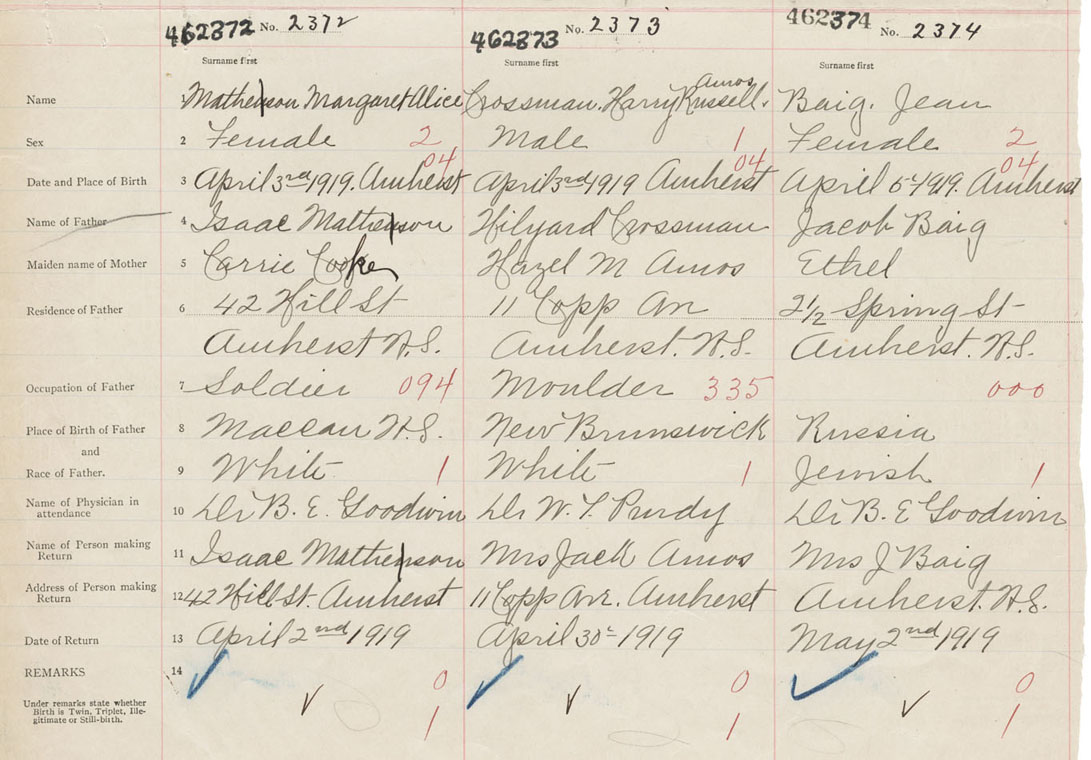 462372 No. 2372 462373 No. 2373 462374 No. 2374
Surname first Surname first Surname first
Amos
Name 1 Matheson Margaret Alice Crossman. Harry Russell. Baig. Jean
Sex 2 Female 2 Male 1 Female 2
04 04 04
Date and Place of Birth 3 April 3rd 1919. Amherst April 3rd 1919 Amherst April 5th 1919. Amherst
Name of Father 4 Isaac Matheson Hilyard Crossman Jacob Baig
Maiden name of Mother 5 Carrie Cooke Hazel M Amos Ethel
Residence of Father 6 42 Hill St 11 Copp Av 2 1/2 Spring St
Amherst N.S. Amherst. N.S. Amherst. N.S.
Occupation of Father 7 Soldier 094 Moulder 335 000
Place of Birth of Father 8 Maccan N.S. New Brunswick Russia
and
Race of Father. 9 White 1 White 1 Jewish 1
Name of Physician in
attendance 10 Dr B. E. Goodwin Dr W. T. Purdy Dr B. E Goodwin
Name of Person making
Return 11 Isaac Matheson Mrs Jack Amos Mrs J Baig
Address of Person making
Return 12 42 Hill St. Amherst 11 Copp Ave. Amherst Amherst. N.S.
Date of Return 13 April 2nd 1919 April 30th 1919 May 2nd 1919
REMARKS 14 0 0 0
Under remarks state whether
Birth is Twin, Triplet, Ille-
gitimate or Still-birth. 1 1 1